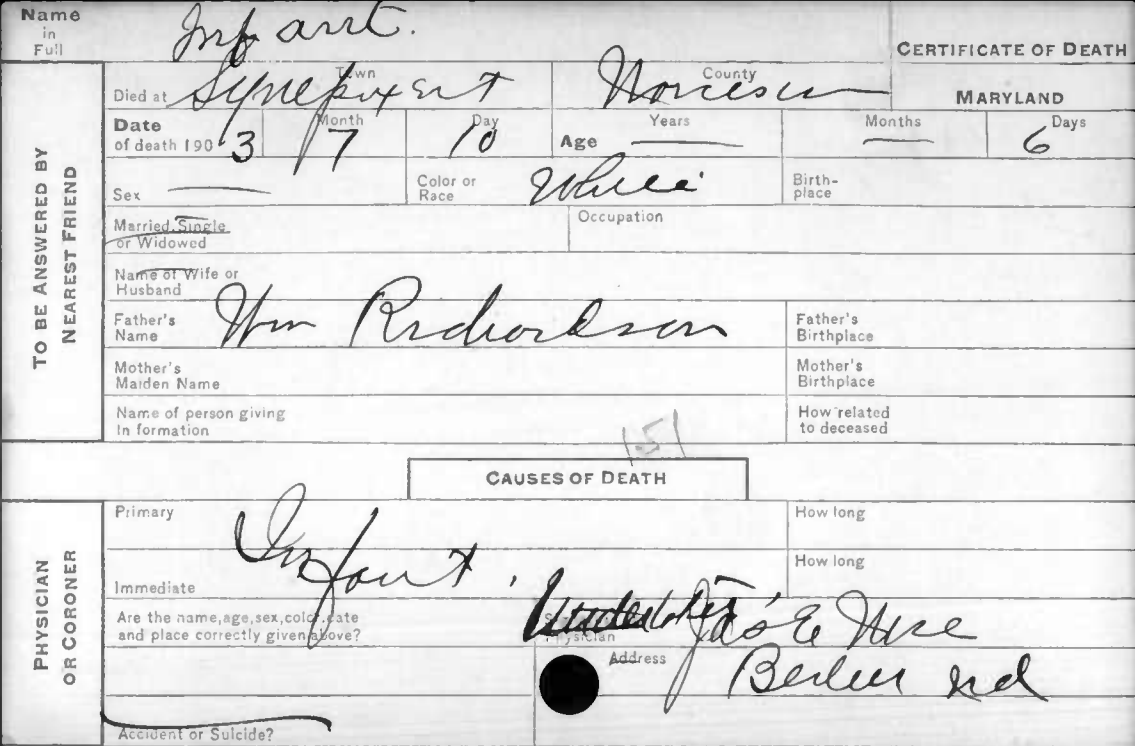 Name in Full Infant.
CERTIFICATE OF DEATH
TO BE ANSWERED BY NEAREST FRIEND
Died at Synepuxent Town Worcester County MARYLAND
Date of death 1903 Month 7 Day 10 Age Years — Months — Days 6
Sex — Color or Race White Birth-place
Married, Single or Widowed Occupation
Name of Wife or Husband
Father's Name Wm Richardson Father's Birthplace
Mother's Maiden Name Mother's Birthplace
Name of person giving In formation How related to deceased
151
CAUSES OF DEATH
PHYSICIAN OR CORONER
Primary Infant. How long
Immediate How long
Are the name, age, sex, color, date and place correctly given above? Physician Jas E
Address Berlin Md
Accident or Suicide?